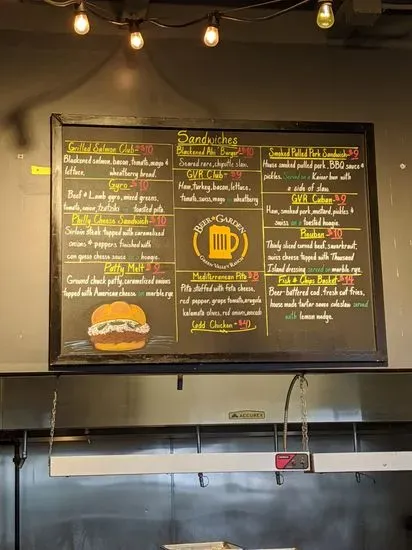 Sandwiches
Grilled Salmon Club - $10
Blackened salmon, bacon, tomato, mayo &
lettuce. wheatberry bread.
Gyro - $10
Beef & Lamb gyro, mixed greens,
tomato, onion, tzatziki on toasted pita
Philly Cheese Sandwich - $10
Sirloin steak topped with caramelized
onions & peppers finished with
con queso cheese sauce on hoagie.
Patty Melt - $9
Ground chuck patty, caramelized onions
topped with American cheese on marble rye
Blackened Ahi Burger - $10
Seared rare, chipotle slaw.
GVR Club - $9
Ham, turkey, bacon, lettuce,
tomato, swiss, mayo on wheatberry
BEER GARDEN
GREEN VALLEY RANCH
Mediterranean Pita $8
Pita stuffed with feta cheese,
red pepper, grape tomato, arugula
kalamata olives, red onions, avocado
(add Chicken - $4)
Smoked Pulled Pork Sandwich - $9
House smoked pulled pork, BBQ sauce &
pickles. Served on a Kaiser bun with
a side of slaw.
GVR Cuban - $9
Ham, smoked pork, mustard, pickles &
swiss on a toasted hoagie.
Reuben - $10
Thinly sliced corned beef, sauerkraut,
swiss cheese topped with Thousand
Island dressing served on marble rye.
Fish & Chips Basket - $14
Beer-battered cod, fresh cut fries,
house made tartar sauce coleslaw served
with lemon wedge.
ACCUREX